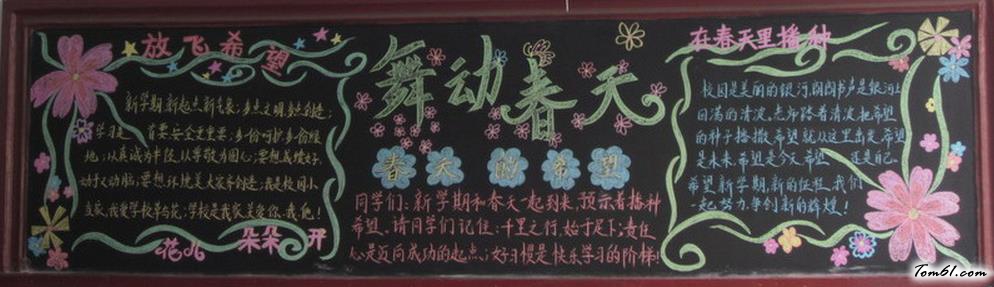 放飞希望
新学期,新起点,新气象;
学习是
首要,安全更重要;多份呵护多份绿
地;以真诚为半径,以尊敬为圆心;要想成绩好,
动手又动脑;要想环境美大家齐创造;我是校园小
主家,我爱学校草与花;学校是我家,关爱你、我、他!
花儿朵朵开
舞动春天
春天的希望
同学们:新学期和春天一起到来,预示着播种
希望。请同学们记住:千里之行,始于足下;责任
心是迈向成功的起点;好习惯是快乐学习的阶梯!
在春天里播种
校园是美丽的银河,朗朗书声是银河上
回满的清波,老师踏着清波把希望
的种子播撒,希望就从这里出发,希望
是未来,希望是今天,希望 还是自己。
希望新学期,新的征程,我们
一起努力,争创新的辉煌!
Tom61.com